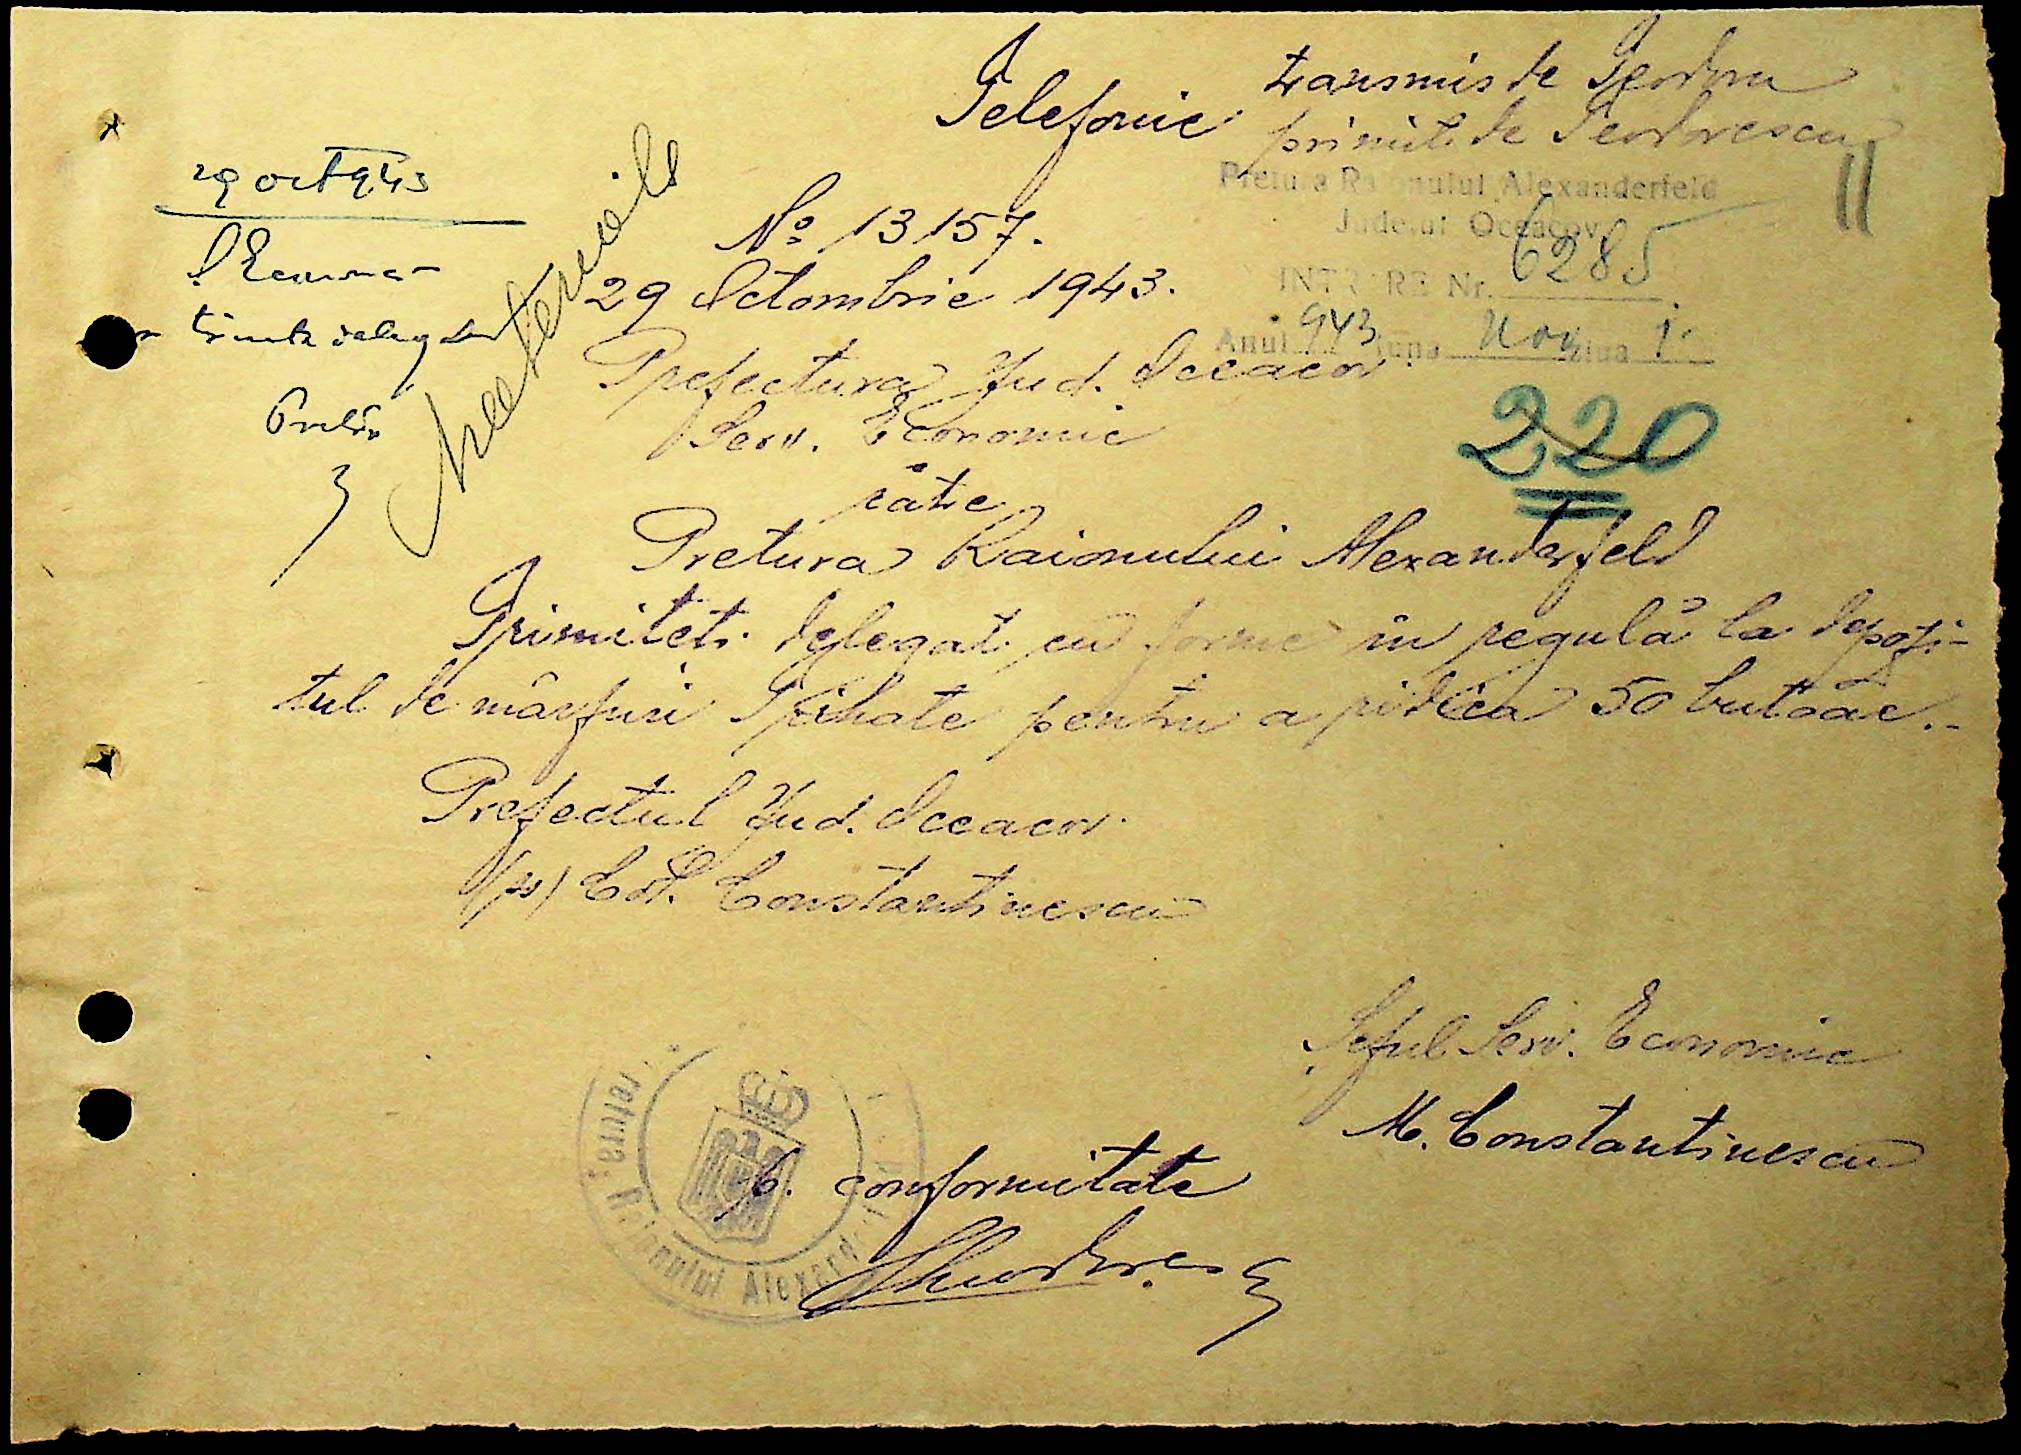 Telefonic transmis de Teodoru
primit de Teodorescu
Pretura Raionului Alexanderfeld
Judetul Oceacov
INTRARE Nr. 6285
Anul 943 Luna Nov ziua 1
11
220
29 oct 943
trimite delegat
Materiale
No 13157.
29 Octombrie 1943.
Prefectura Jud. Oceacov
Serv. Economic
către
Pretura Raionului Alexanderfeld
Trimiteti delegat cu forme în regulă la depozi-
tul de mărfuri Trihate pentru a ridica 50 butoae.-
Prefectul Jud. Oceacov
(ss) Col. Constantinescu
Șeful Serv. Economic
M. Constantinescu
p. conformitate
Pretura Raionului Alexanderfeld